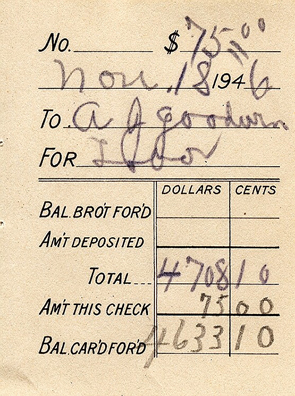 No. $ 75 00
Nov. 18 1946
To A J Goodwin
FOR Floor
DOLLARS CENTS
BAL. BRO'T FOR'D
AM'T DEPOSITED
TOTAL 4708 10
AM'T THIS CHECK 75 00
BAL. CAR'D FOR'D 4633 10